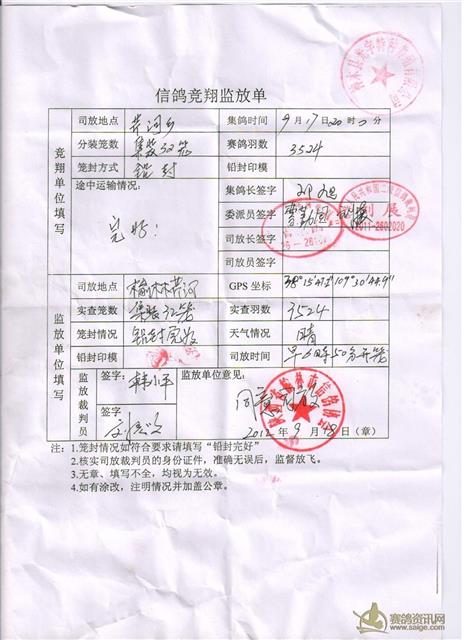 信鸽竞翔监放单
竞翔单位填写
司放地点 芹河乡 集鸽时间 9月17日20时0分
分装笼数 集装32笼 赛鸽羽数 3524
笼封方式 铅封 铅封印模
途中运输情况: 完好! 集鸽长签字
委派员签字
司放长签字
司放员签字
2011-2602020
监放单位填写
司放地点 榆林芹河 GPS 坐标 38°15'47" 109°30'44.9"
实查笼数 集装32笼 实查羽数 3524
笼封情况 铅封完好 天气情况 晴
铅封印模 司放时间 早6时50分开笼
监放裁判员 签字: 韩小平 监放单位意见:
签字 同意
2012年9月18日（章）
注：1.笼封情况如符合要求请填写“铅封完好”
2.核实司放裁判员的身份证件，准确无误后，监督放飞。
3.无章、填写不全，均视为无效。
4.如有涂改，注明情况并加盖公章。
赛鸽资讯网
www.saige.com